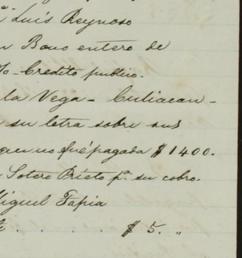 Luis Reynoso
n Bono entero de
Credito public.
la Vega - Culiacan -
su letra sobre sus
que no fué pagada $1400.
Sotero Prieto pa. su cobro.
Miguel Tapia
$ 5. "